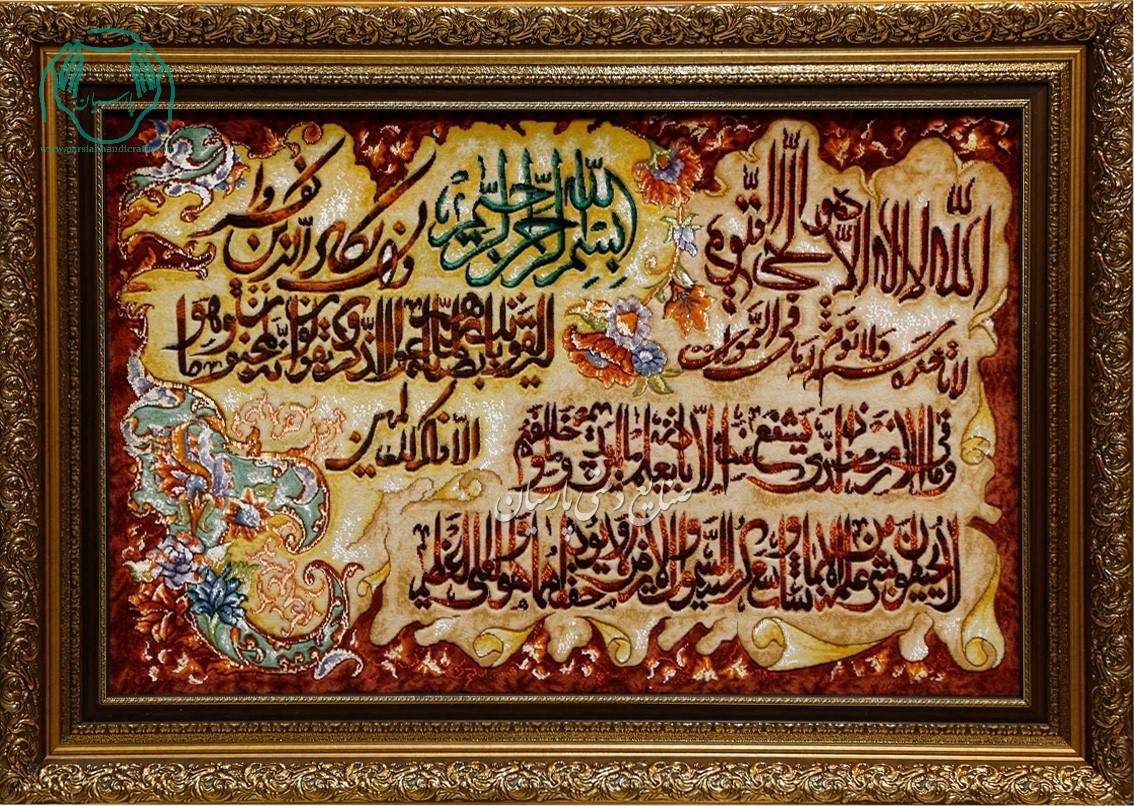 بسم الله الرحمن الرحیم
الله لا اله الا هو الحی القیوم
لا تاخذه سنه ولا نوم له ما فی السموات
وما فی الارض من ذا الذی یشفع عنده الا باذنه یعلم ما بین ایدیهم وما خلفهم
ولا یحیطون بشیء من علمه الا بما شاء وسع کرسیه السموات والارض ولا یؤده حفظهما وهو العلی العظیم
وان یکاد الذین کفروا
لیزلقونک بابصارهم لما سمعوا الذکر ویقولون انه لمجنون وما هو
الا ذکر للعالمین
پارسیان
www.parsianhandicraft
صنایع دستی پارسیان